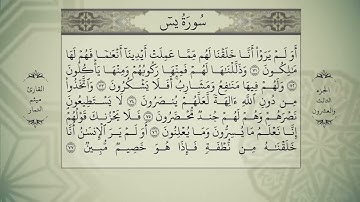 سُورَةُ يسٓ
أَوَلَمْ يَرَوْا۟ أَنَّا خَلَقْنَا لَهُم مِّمَّا عَمِلَتْ أَيْدِينَآ أَنْعَٰمًا فَهُمْ لَهَا
مَٰلِكُونَ ٧١ وَذَلَّلْنَٰهَا لَهُمْ فَمِنْهَا رَكُوبُهُمْ وَمِنْهَا يَأْكُلُونَ
٧٢ وَلَهُمْ فِيهَا مَنَٰفِعُ وَمَشَارِبُ أَفَلَا يَشْكُرُونَ ٧٣ وَٱتَّخَذُوا۟
مِن دُونِ ٱللَّهِ ءَالِهَةً لَّعَلَّهُمْ يُنصَرُونَ ٧٤ لَا يَسْتَطِيعُونَ
نَصْرَهُمْ وَهُمْ لَهُمْ جُندٌ مُّحْضَرُونَ ٧٥ فَلَا يَحْزُنكَ قَوْلُهُمْ
إِنَّا نَعْلَمُ مَا يُسِرُّونَ وَمَا يُعْلِنُونَ ٧٦ أَوَلَمْ يَرَ ٱلْإِنسَٰنُ أَنَّا
خَلَقْنَٰهُ مِن نُّطْفَةٍ فَإِذَا هُوَ خَصِيمٌ مُّبِينٌ ٧٧
الجزء
الثالث
والعشرون
القارئ
ميثم
التمار